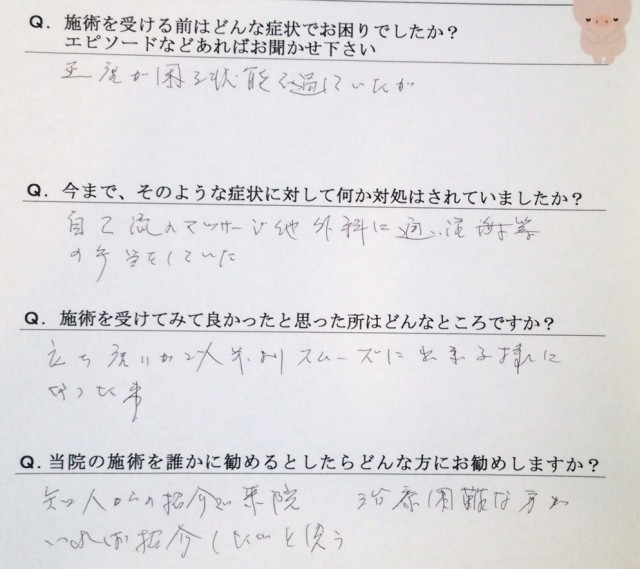 Q．施術を受ける前はどんな症状でお困りでしたか？
エピソードなどあればお聞かせ下さい
正座が困る状態で過していたが
Q．今まで、そのような症状に対して何か対処はされていましたか？
自己流のマッサージ他 外科に通い湿布等
の手当をしていた
Q．施術を受けてみて良かったと思った所はどんなところですか？
立ち座りが以前よりスムーズに出来る様に
なった事
Q．当院の施術を誰かに勧めるとしたらどんな方にお勧めしますか？
知人からの紹介で来院 治療困難な方が
いれば紹介したいと思う